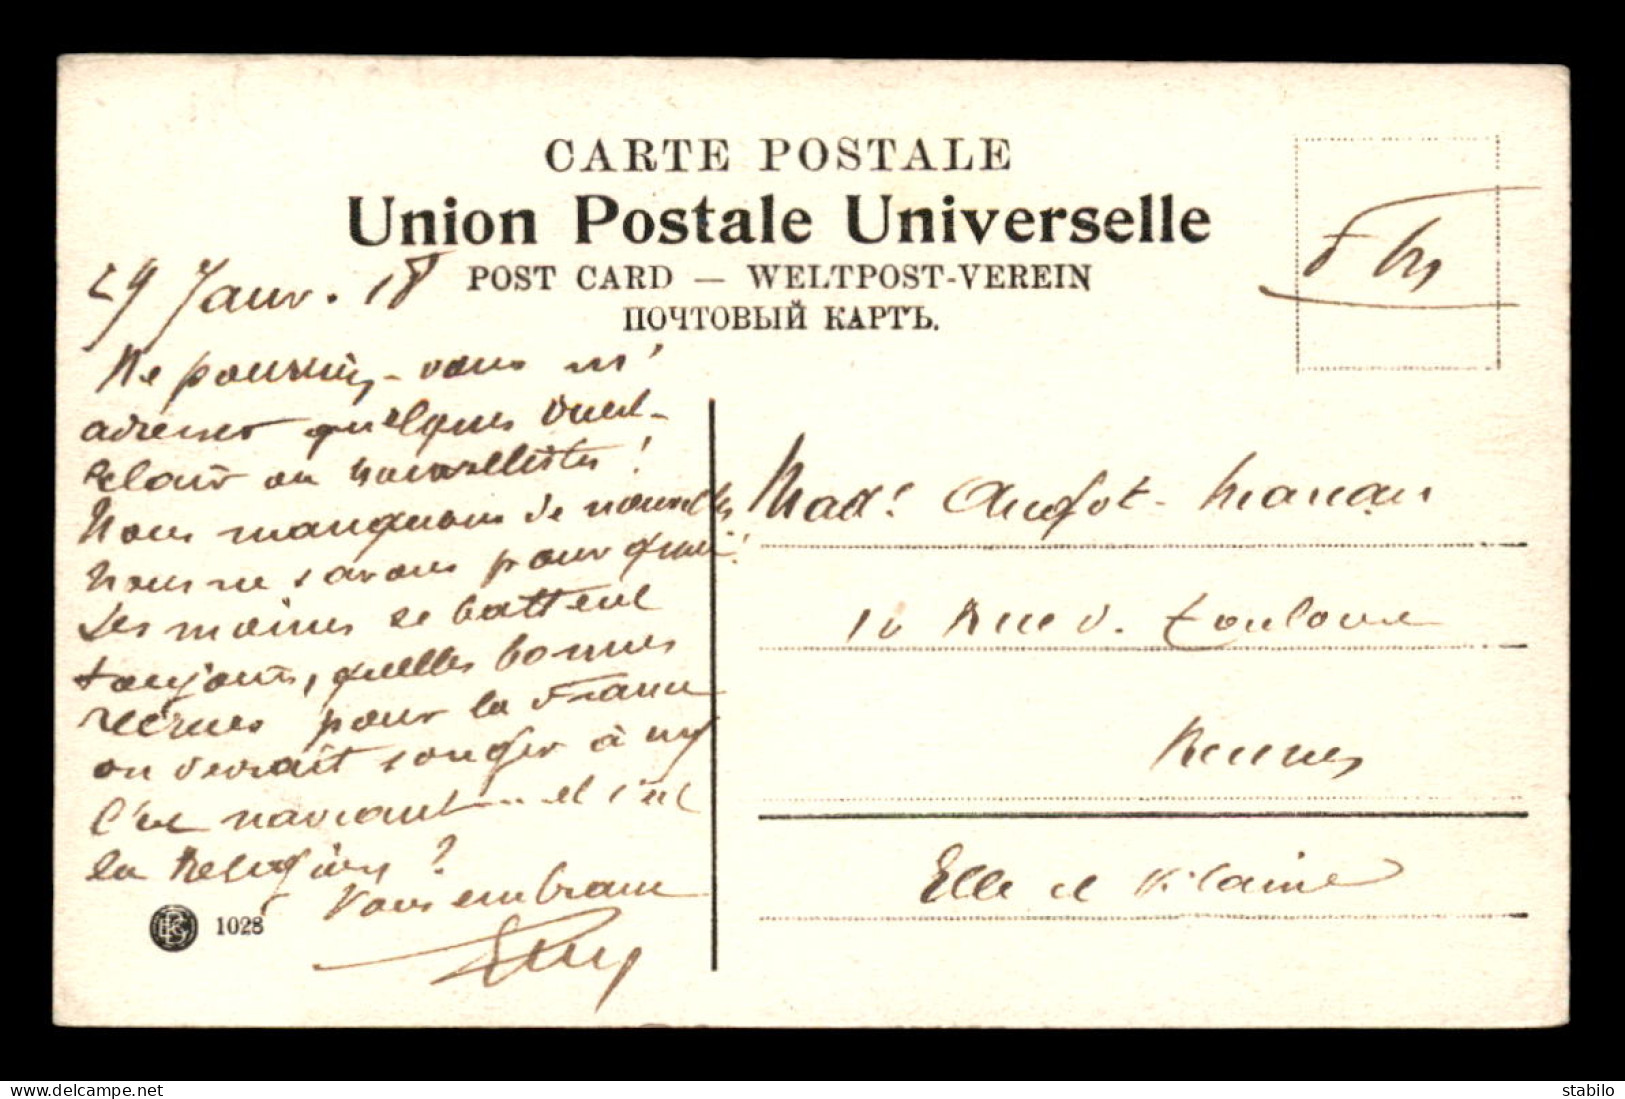 CARTE POSTALE
Union Postale Universelle
POST CARD — WELTPOST-VEREIN
ПОЧТОВЫЙ КАРТЪ.
29 Janv. 18
F M
Ne pourriez-vous m'
adresser quelques Ouest-
Eclair ou nouvellistes !
Nous manquons de nouvelles
nous ne savons pourquoi !
Les moines se battent
toujours, quelles bonnes
recrues pour la France
on devrait songer à
C'est navrant et c'est
la Religion ?
Vous embrasse
1028
Mad. Marian
10 Rue d. Toulouse
Rennes
Ille et Vilaine
Delcampe.net
stabilo